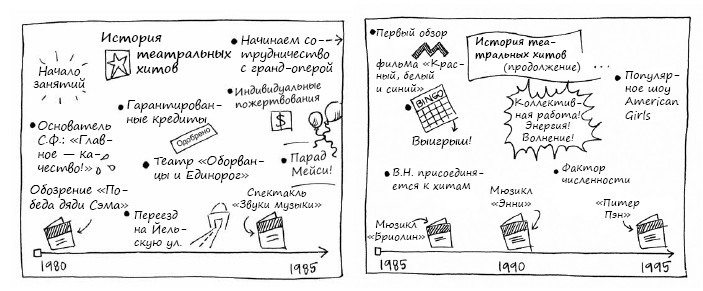 История
театральных
хитов
Начало
занятий
• Начинаем со-
трудничество
с гранд-оперой
• Индивидуальные
пожертвования
$
• Гарантирован-
ные кредиты
Одобрено
• Основатель
С.Ф.: «Глав-
ное — ка-
чество!»
• Театр «Оборван-
цы и Единорог»
• Парад
Мейси!
Обозрение «По-
беда дяди Сэма»
• Переезд
на Йель-
скую ул.
Спектакль
«Звуки музыки»
1980
1985
• Первый обзор
фильма «Крас-
ный, белый
и синий»
История теа-
тральных хитов
(продолжение)
...
• Популяр-
ное шоу
American
Girls
BINGO
Выигрыш!
Коллектив-
ная работа!
Энергия!
Волнение!
• В.Н. присоединя-
ется к хитам
• Фактор
численности
Мюзикл
«Бриолин»
Мюзикл
«Энни»
«Питер
Пэн»
1985
1990
1995